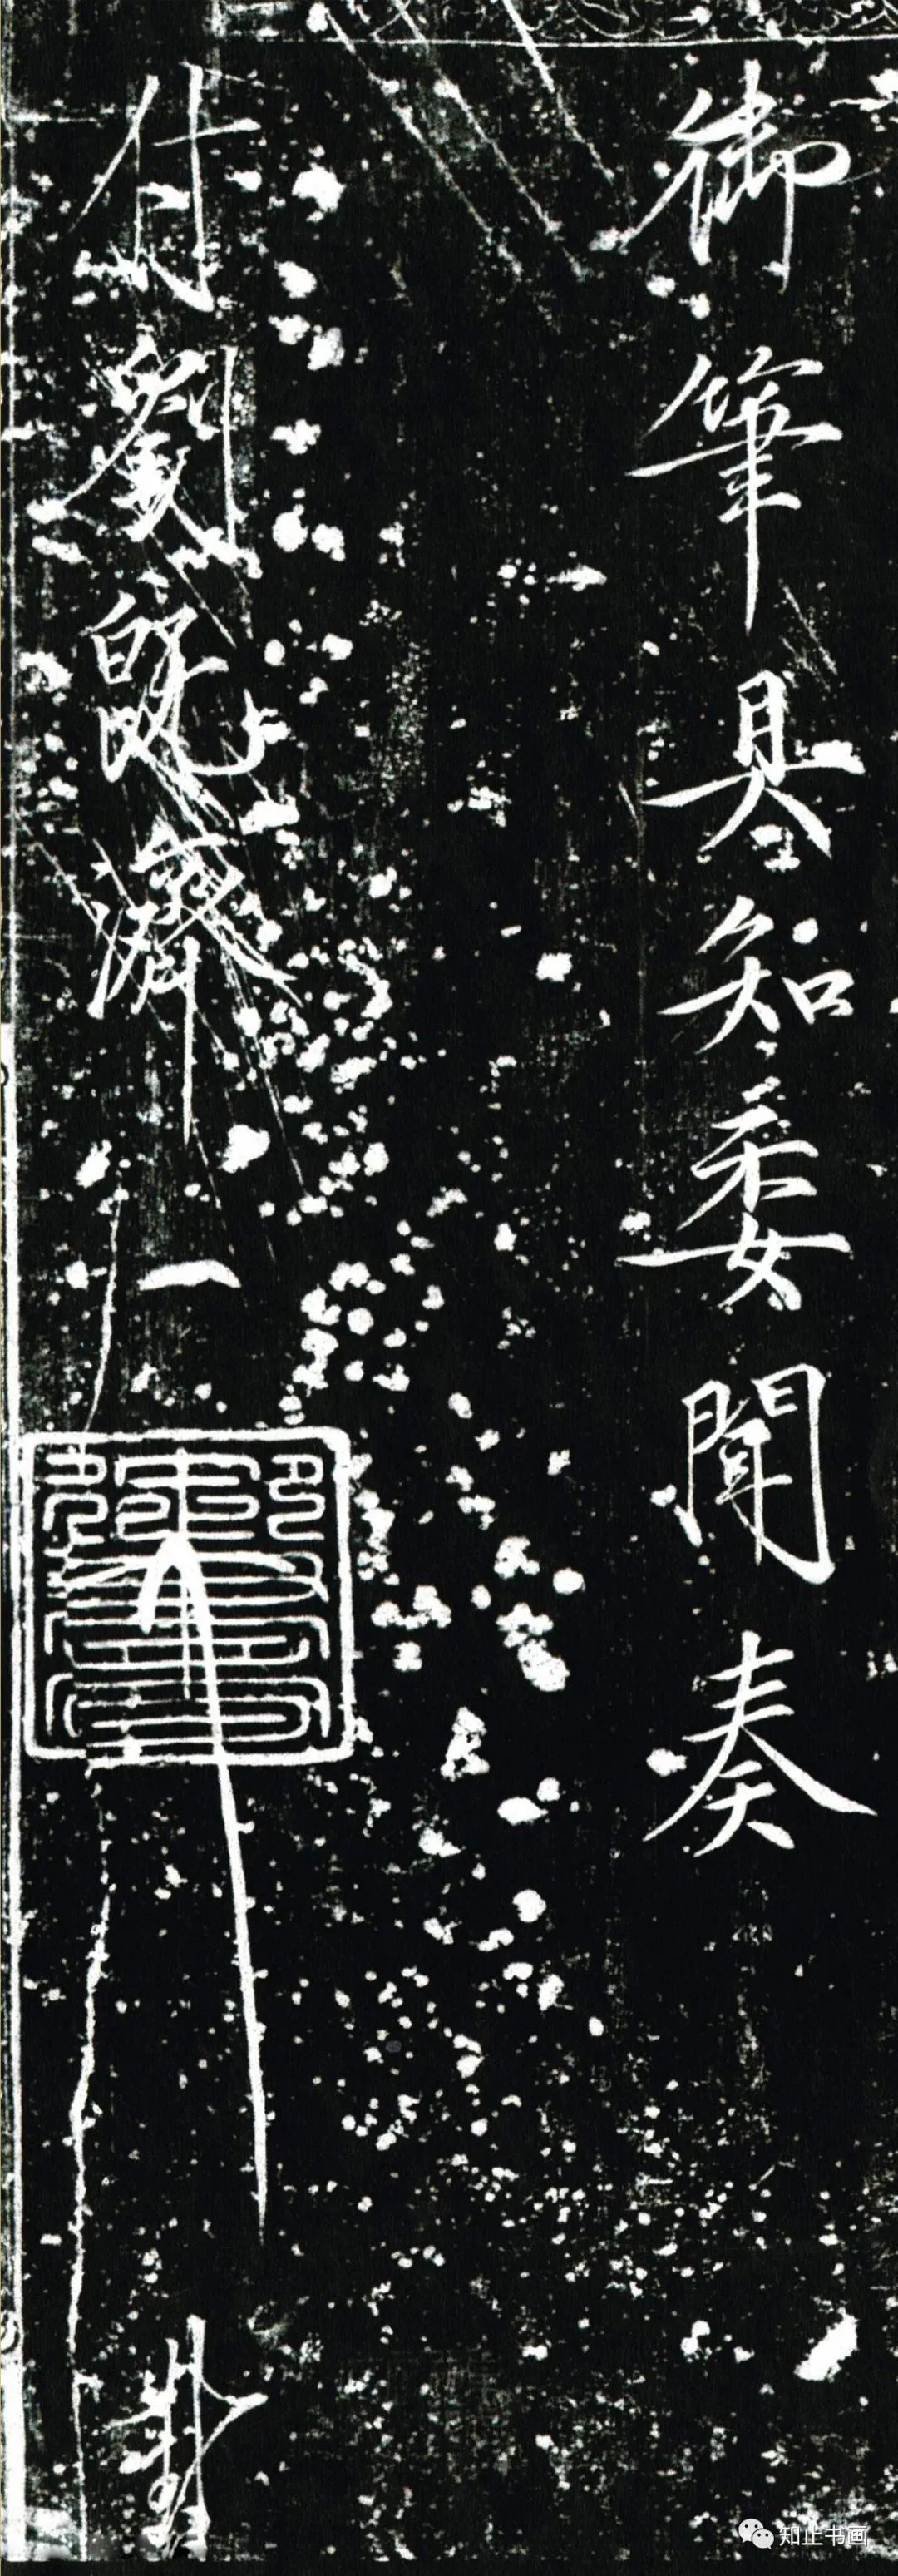 御筆具知委聞奏
付劉既濟
知止书画